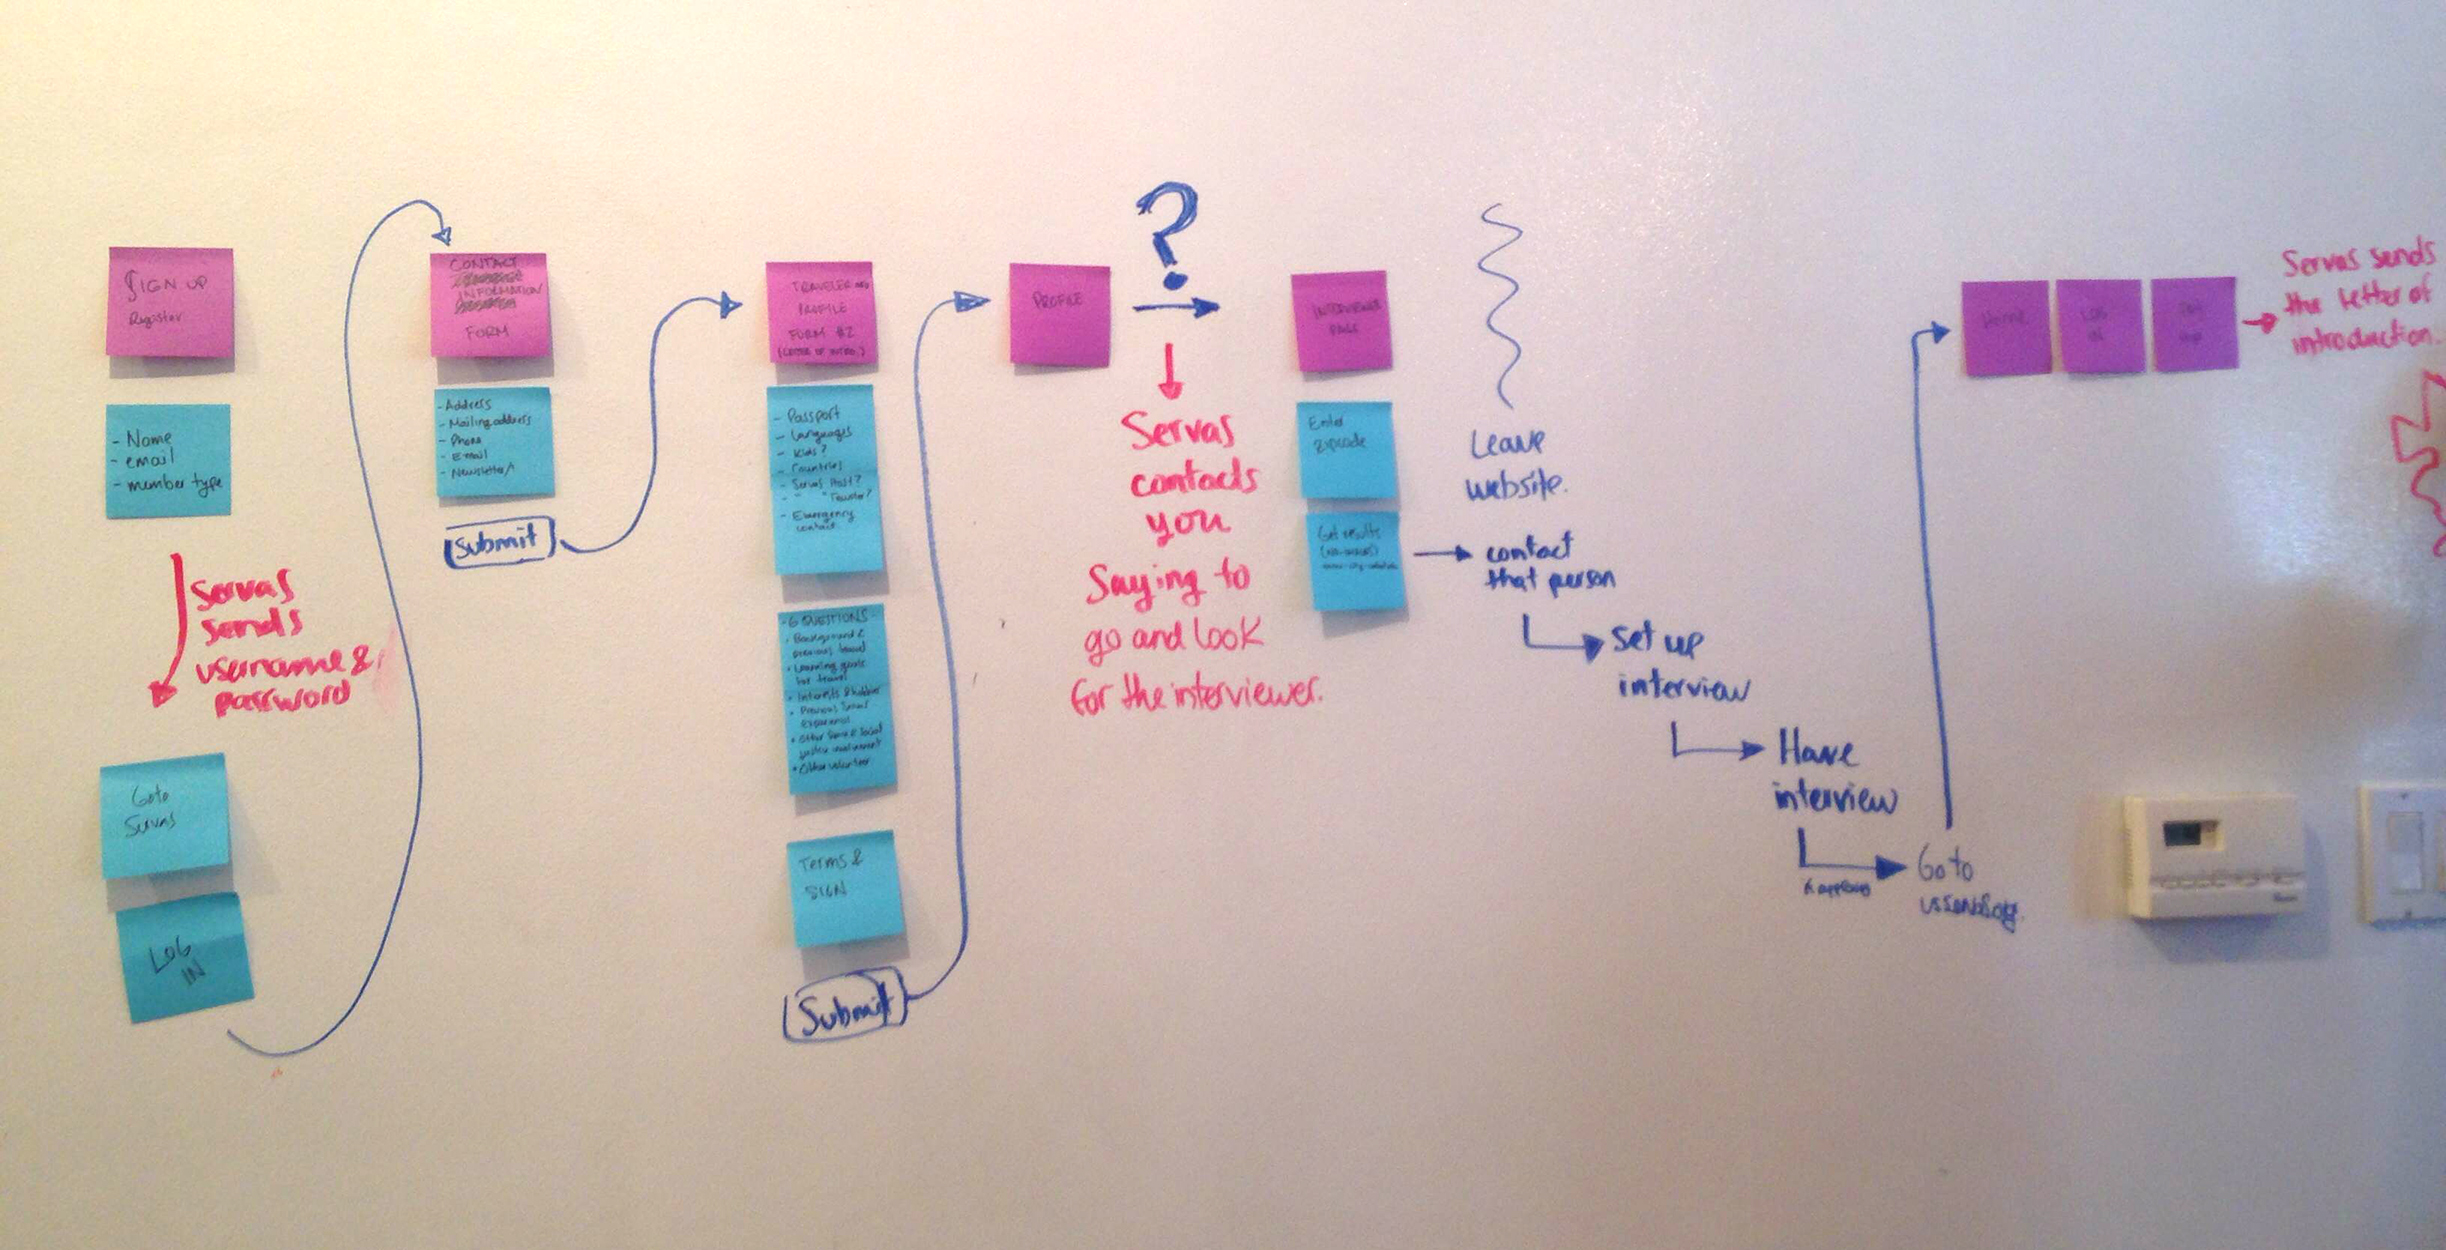 SIGN UP
Register
- Name
- email
- member type
Servas
sends
username &
password
Go to
Servas
LOG
IN
CONTACT
INFORMATION
FORM
- Address
- Mailing address
- Phone
- Email
- Newsletter
Submit
TRAVELER
PROFILE
FORM #2
(LETTER OF INTRO.)
- Passport
- Languages
- Kids?
- Countries
- Servas Host?
- " " Traveler?
- Emergency
contact
6 QUESTIONS
• Background &
previous travel
• Learning goals
for travel
• Interests & hobbies
• Previous Servas
experience
• Other
• Other volunteer
Terms &
SIGN
Submit
PROFILE
?
Servas
contacts
you
Saying to
go and look
for the interviewer.
INTERVIEWER
PAGE
Enter
zipcode
Get results
Leave
website.
contact
that person
set up
interview
Have
interview
Go to
Home
LOG
IN
Servas sends
the letter of
introduction.